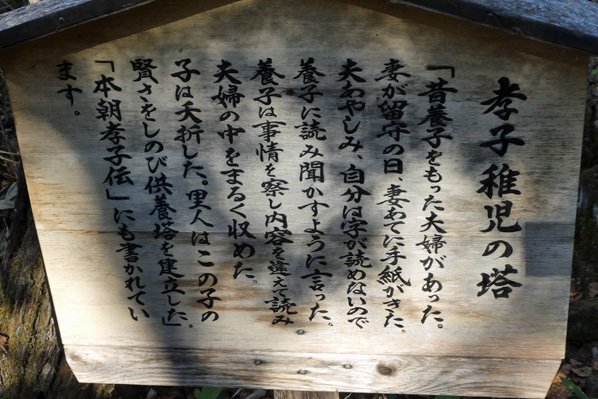 孝子稚児の塔
「昔養子をもった夫婦があった。
妻が留守の日、妻あてに手紙がきた。
夫あやしみ、自分は字が読めないので
養子に読み聞かすように言った。
養子は事情を察し内容を違えて読み
夫婦の中をまるく収めた。
子は夭折した。里人はこの子の
賢さをしのび供養塔を建立した」
「本朝孝子伝」にも書かれてい
ます。